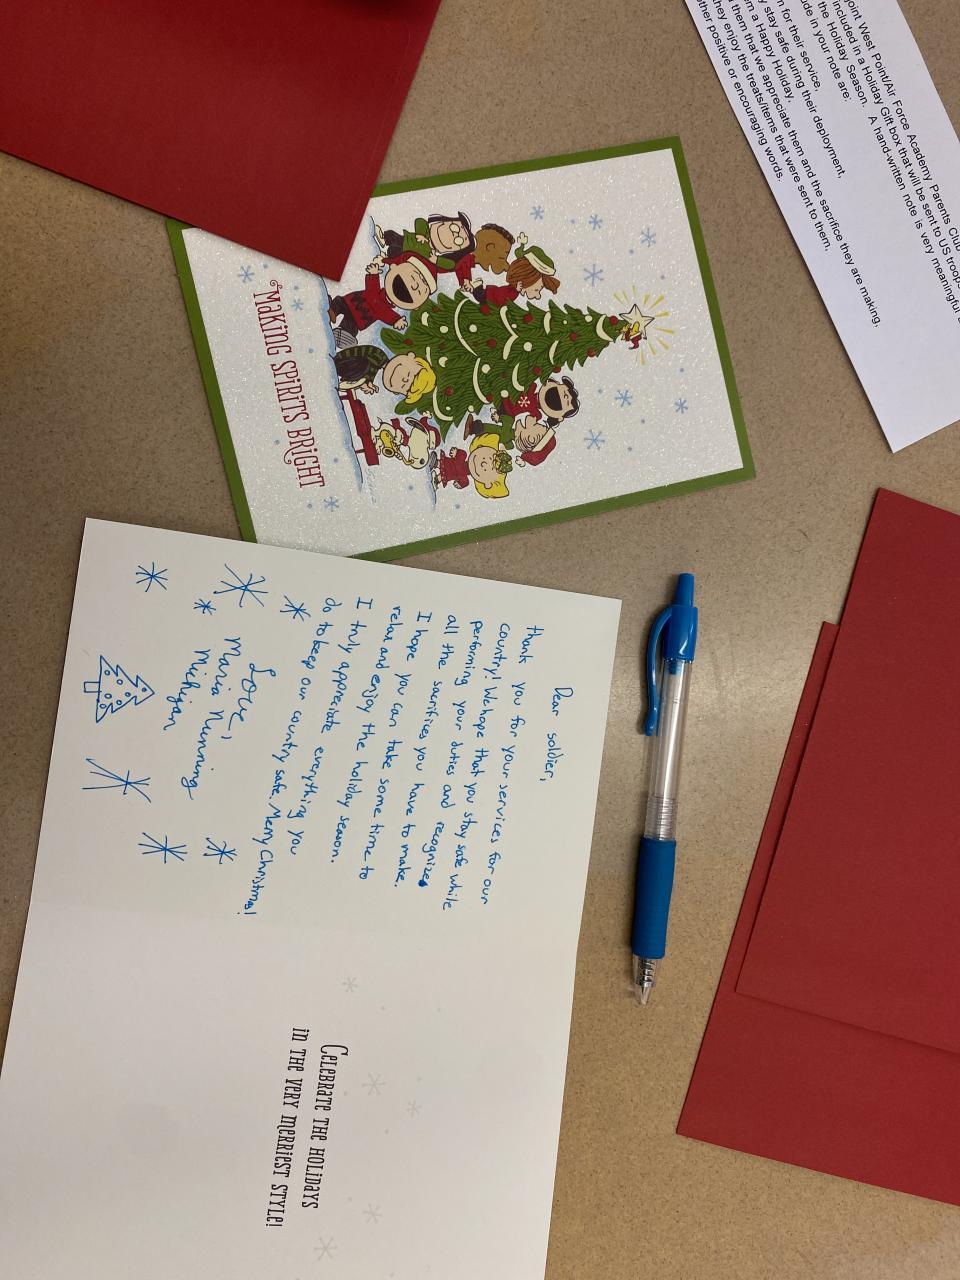 Point West Point/Air Force Academy Parents Club
included in a Holiday Gift box that will be sent to US troops
the Holiday Season. A hand-written note is very meaningful
in your note are:
for their service,
stay safe during their deployment,
a Happy Holiday,
them that we appreciate them and the sacrifice they are making,
they enjoy the treats/items that were sent to them,
other positive or encouraging words.
MAKING SPIRITS BRIGHT
Dear soldier,
thank you for your services for our
country! We hope that you stay safe while
performing your duties and recognize
all the sacrifices you have to make.
I hope you can take some time to
relax and enjoy the holiday season.
I truly appreciate everything you
do to keep our country safe. Merry Christmas!
Love,
Maria Nunning
Michigan
CELEBRATE THE HOLIDAYS
IN THE VERY MERRIEST STYLE!